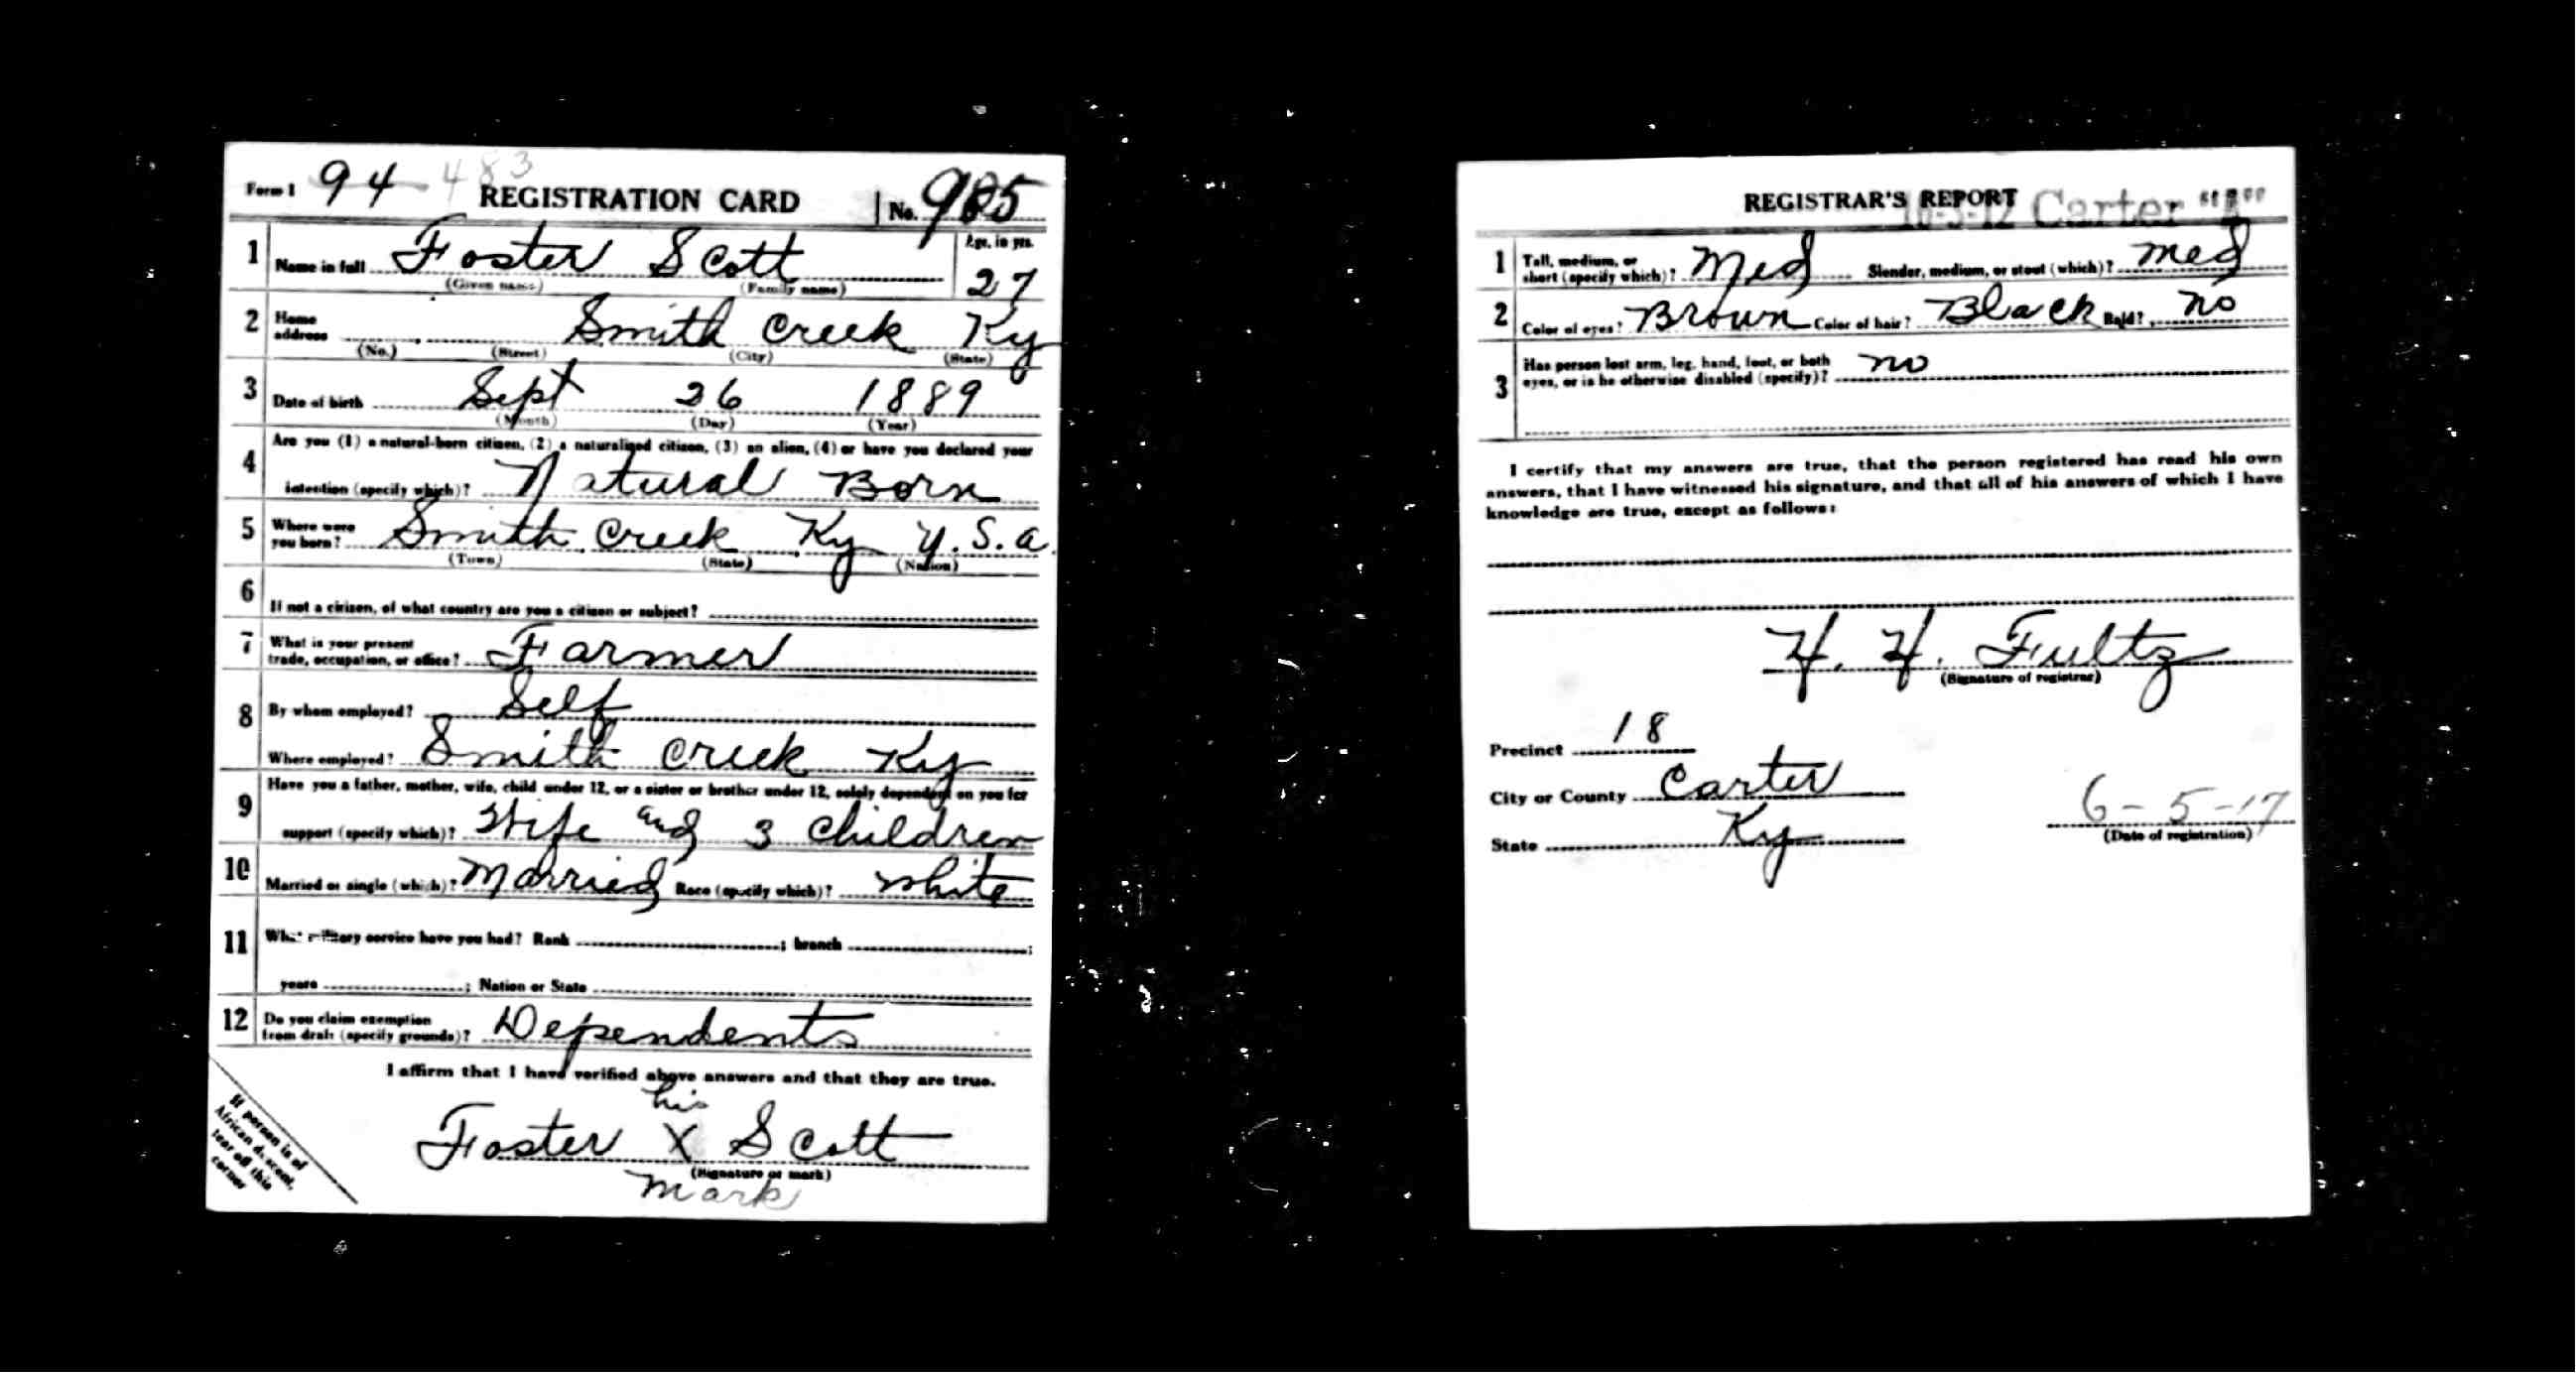 Form 1 94 483 REGISTRATION CARD No. 985
1 Name in full Foster Scott Age, in yrs.
(Given name) (Family name) 27
2 Home address Smith Creek Ky
(No.) (Street) (City) (State)
3 Date of birth Sept 26 1889
(Month) (Day) (Year)
4 Are you (1) a natural-born citizen, (2) a naturalized citizen, (3) an alien, (4) or have you declared your
intention (specify which)? Natural Born
5 Where were you born? Smith Creek Ky U.S.a.
(Town) (State) (Nation)
6 If not a citizen, of what country are you a citizen or subject?
7 What is your present trade, occupation, or office? Farmer
8 By whom employed? Self
Where employed? Smith Creek Ky
9 Have you a father, mother, wife, child under 12, or a sister or brother under 12, solely dependent on you for
support (specify which)? Wife and 3 Children
10 Married or single (which)? Married Race (specify which)? White
11 What military service have you had? Rank ; branch ;
years ; Nation or State
12 Do you claim exemption from draft (specify grounds)? Dependents
I affirm that I have verified above answers and that they are true.
his
Foster X Scott
(Signature or mark)
mark
If person is of
African descent,
tear off this
corner
REGISTRAR'S REPORT 16-3-12 Carter "A"
1 Tall, medium, or short (specify which)? Med Slender, medium, or stout (which)? Med
2 Color of eyes? Brown Color of hair? Black Bald? No
3 Has person lost arm, leg, hand, foot, or both
eyes, or is he otherwise disabled (specify)? no
I certify that my answers are true, that the person registered has read his own
answers, that I have witnessed his signature, and that all of his answers of which I have
knowledge are true, except as follows:
H. H. Fultz
(Signature of registrar)
Precinct 18
City or County Carter
State Ky
6-5-17
(Date of registration)